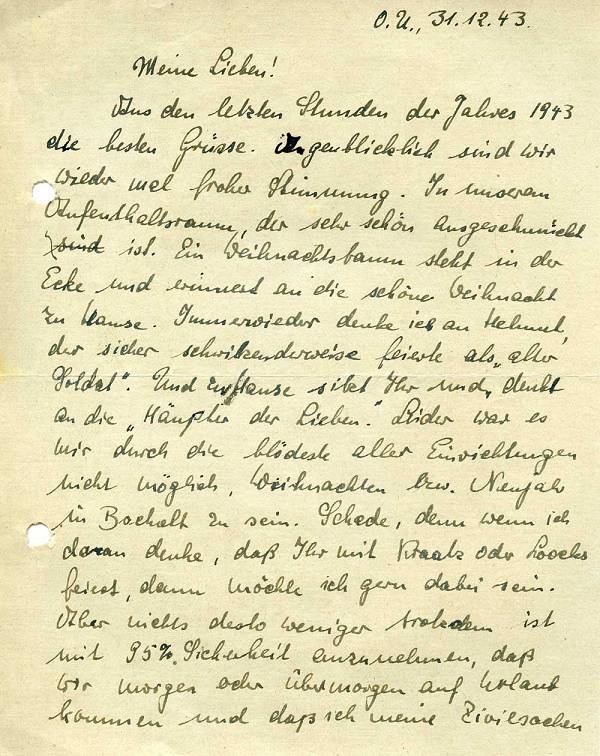 O.U., 31.12.43.
Meine Lieben!
Aus den letzten Stunden der Jahres 1943
die besten Grüsse. Augenblicklich sind wir
wieder mal froher Stimmung. In unserem
Aufenthaltsraum, der sehr schön ausgeschmückt
sind ist. Ein Weihnachtsbaum steht in der
Ecke und erinnert an die schöne Weihnacht
zu Hause. Immerwieder denke ich an Helmut,
der sicher schwitzenderweise feierte als „alter
Soldat". Und zu Hause sitzt Ihr und denkt
an die „Häupter der Lieben." Leider war es
mir durch die blödeste aller Einrichtungen
nicht möglich, Weihnachten bzw. Neujahr
in Bocholt zu sein. Schade, denn wenn ich
daran denke, daß Ihr mit Kraatz oder Loocks
feiert, dann möchte ich gern dabei sein.
Aber nichts desto weniger trotzdem ist
mit 95% Sicherheit anzunehmen, daß
wir morgen oder übermorgen auf Urlaub
kommen und daß ich meine Zivilsachen